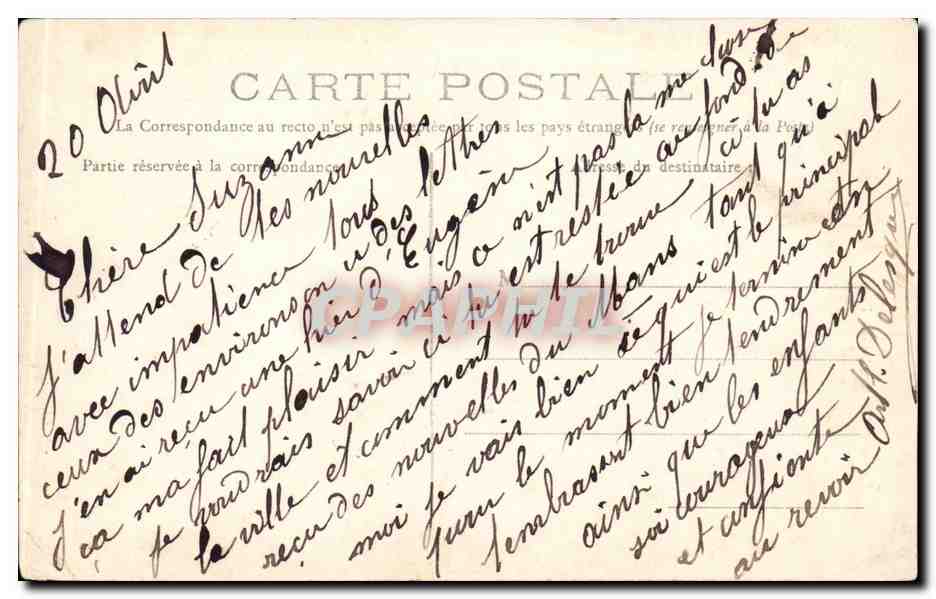 CARTE POSTALE
La Correspondance au recto n'est pas acceptée par tous les pays étrangers (se renseigner à la Poste)
Partie réservée à la correspondance
Adresse du destinataire
20 Août
Chère Suzanne
J'attend de tes nouelles
avec impatience tous
ceux des environs on u des lettres
j'en ai réçu une hier d'Eugène
ça ma fait plaisir mais ce n'est pas la me chose
je voudrais savoir ci tu est restée au fond de
la ville et comment tu te trouve ci tu as
reçu des nouvelles du Mans tant qu'à
moi je vais bien cé qui est le principal
pour le moment je termine en
t'embrasant bien tendrement
ainsi que les enfants
soi courageuse
et confiente
au revoir
CPAPHIL